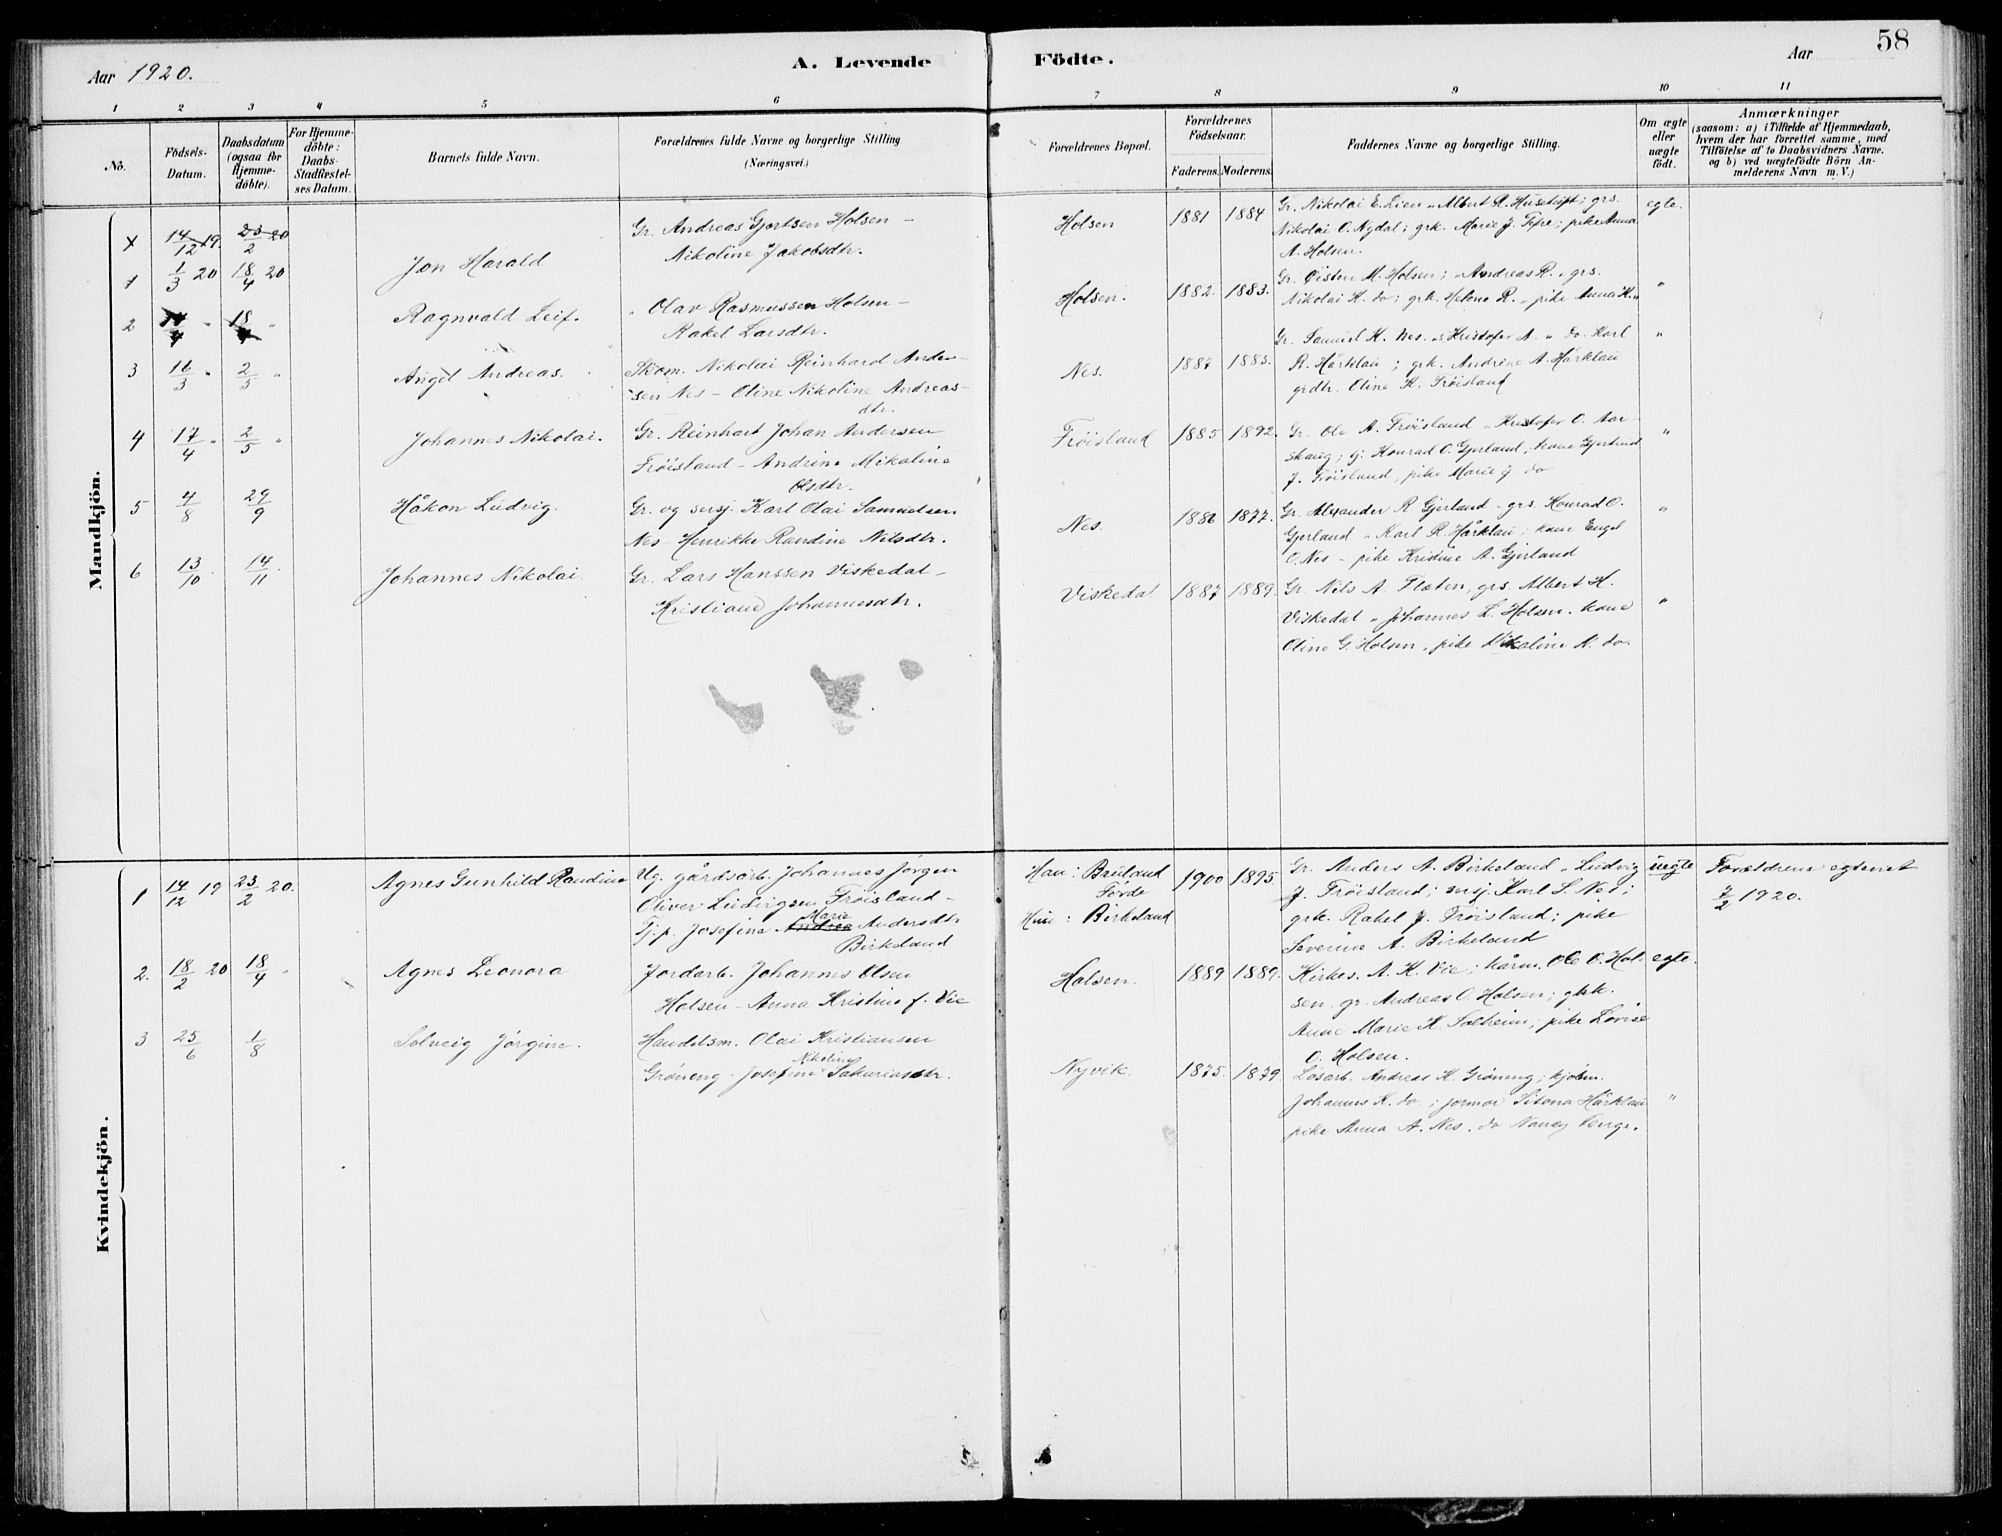 Aar 1920.
A. Levende
Födte.
Aar
58
1 2 3 4 5 6 7 8 9 10 11
No.
Födsels-Datum.
Daabsdatum (ogsaa for Hjemme-döbte).
For Hjemme-döbte: Daabs-Stadfæstel-ses Datum.
Barnets fulde Navn.
Forældrenes fulde Navne og borgerlige Stilling
(Næringsvei.)
Forældrenes Bopæl.
Forældrenes Födselsaar.
Faderens. Moderens.
Faddernes Navne og borgerlige Stilling.
Om ægte eller uægte födt.
Anmærkninger
(saasom: a) i Tilfælde af Hjemmedaab,
hvem der har forrettet samme, med
Tilföielse af to Daabsvidners Navne.
og b) ved uægtefödte Börn An-
melderens Navn m. V.)
Mandkjön.
14/12 19. 23/2 20
1 1/3 20 18/4 20 Jon Harald
Gr. Andreas Gjertsen Holsen -
Nikoline Jakobsdtr.
Holsen 1881 1884
Gr. Nikolai E. Lien „ Albert R. Husetuft; grs.
Nikolai O. Nydal; grk. Marie J. Fepe; pike Anna
A. Holsen.
egte.
2 18 „ Ragnvald Leif.
„ Olav Rasmussen Holsen -
Rakel Larsdtr.
Holsen. 1882. 1883.
Gr. Øisten M. Holsen; „ Andreas R. „ grs.
Nikolai H. do; grk. Helene R. „ pike Anna H. „
"
3 16/3 „ 2/5 „ Angel Andreas.
Skom. Nikolai Reinhard Ander-
sen Nes - Oline Nikoline Andreas-
dtr.
Nes. 1887 1883.
Gr. Samuel H. Nes. „ Kristofer A. „ do. Karl
R. Hårklau; grk. Andrine A. Hårklau
grdtr. Oline K. Frøisland
"
4 17/4 „ 2/5 „ Johannes Nikolai.
Gr. Reinhart Johan Andersen
Frøisland - Andrine Mikaline
Olsdtr.
Frøisland 1885 1892.
Gr. Ole A. Frøisland „ Kristofer O. Aar-
skaug; g. Konrad O. Gjerland; kone Gjertrud
J. Frøisland, pike Marie J do
"
5 4/8 29/9 Håkon Ludvig.
Gr. og sersj. Karl Olai Samuelsen
Nes - Henrikke Randine Nilsdtr.
Nes. 1886 1877.
Gr. Alexander R Gjerland - grs. Konrad O.
Gjerland „ Karl R. Hårklau; kone Engel
O. Nes - pike Kristine A. Gjerland
"
6 13/10. 14/11. Johannes Nikolai.
Gr. Lars Hanssen Viskedal -
Kristiane Johannesdtr.
Viskedal 1887 1889.
Gr. Nils A. Flaten, grs. Albert H.
Viskedal „ Johannes L. Holsen. kone
Oline G. Holsen, pike Nikoline K. do.
"
Kvindekjön.
1 14/12 19 23/2 20. Agnes Gunhild Randine
Ug. gårdsarb. Johannes Jørgen
Oliver Ludvigsen Frøisland -
Marie
Tj. p. Josefine Andrea Andersdtr
Birkeland
Han: Bruland
Førde
Hun: Birkeland
1900 1895
Gr. Anders A. Birkeland „ Ludvig
J. Frøisland; sersj. Karl S. Nes;
grk. Rakel J. Frøisland; pike
Severine A. Birkeland
uegte
Forældrene egteviet
7/2 1920.
2. 18/2 20 18/4 „ Agnes Leonora
Jordarb. Johannes Olsen
Holsen - Anna Kristine f. Vie
Holsen. 1889 1889.
Kirkes. A. K. Vie; kårm. Ole O. Hol-
sen, gr. Andreas O. Holsen; gbrk.
Anne Marie K. Solheim; pike Lovise
O. Holsen.
egte.
3 25/6 1/8 Solveig Jørgine.
Handelsm. Olai Kristiansen
Nikoline
Grøneng. Josefine Sakariasdtr.
Nyvik. 1875. 1879.
Løsarb. Andreas K. Grøneng; kjøbm.
Johannes K. do; jormor Sitona Hårklau
pike Anna A. Nes. do Nancy Tenge.
"